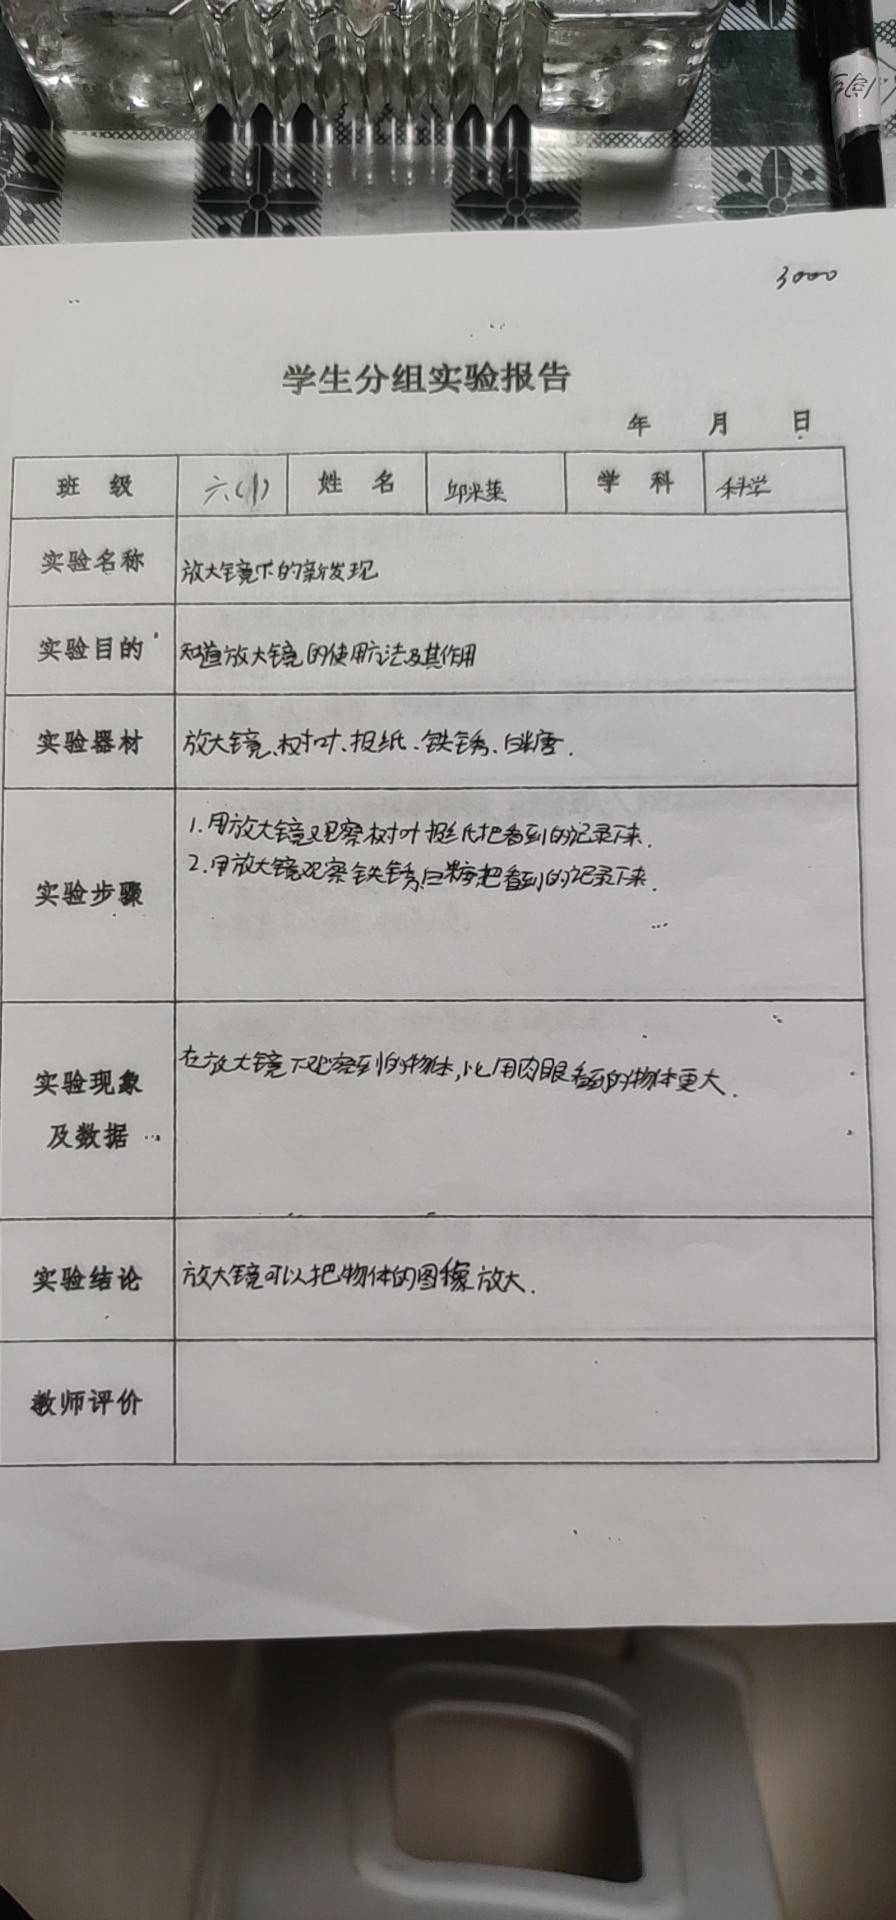 3000
学生分组实验报告
年 月 日
班 级 六(1) 姓 名 邱米葉 学 科 科学
实验名称 放大镜下的新发现
实验目的 知道放大镜的使用方法及其作用
实验器材 放大镜、树叶、报纸、铁锈、白糖.
实验步骤
1.用放大镜观察树叶报纸把看到的记录下来.
2.用放大镜观察铁锈、白糖把看到的记录下来.
实验现象
及数据
在放大镜下观察到的物体,比用肉眼看到的物体更大.
实验结论 放大镜可以把物体的图像放大.
教师评价